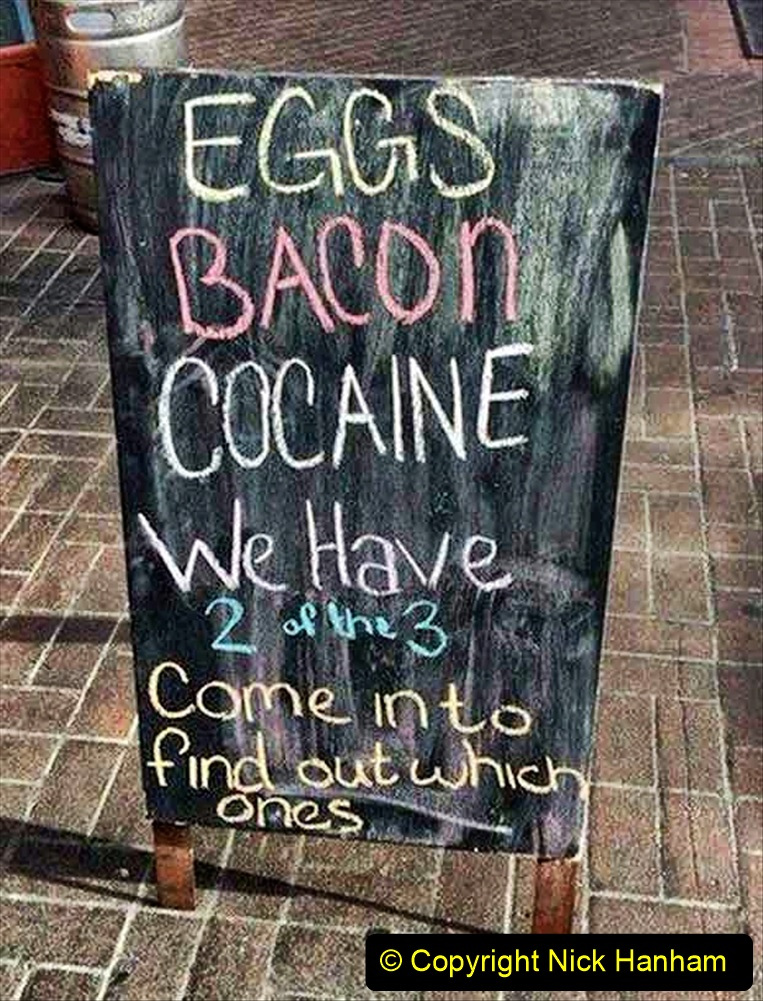 EGGS
BACON
COCAINE
We Have
2 of the 3
Come in to
find out which
ones
© Copyright Nick Hanham